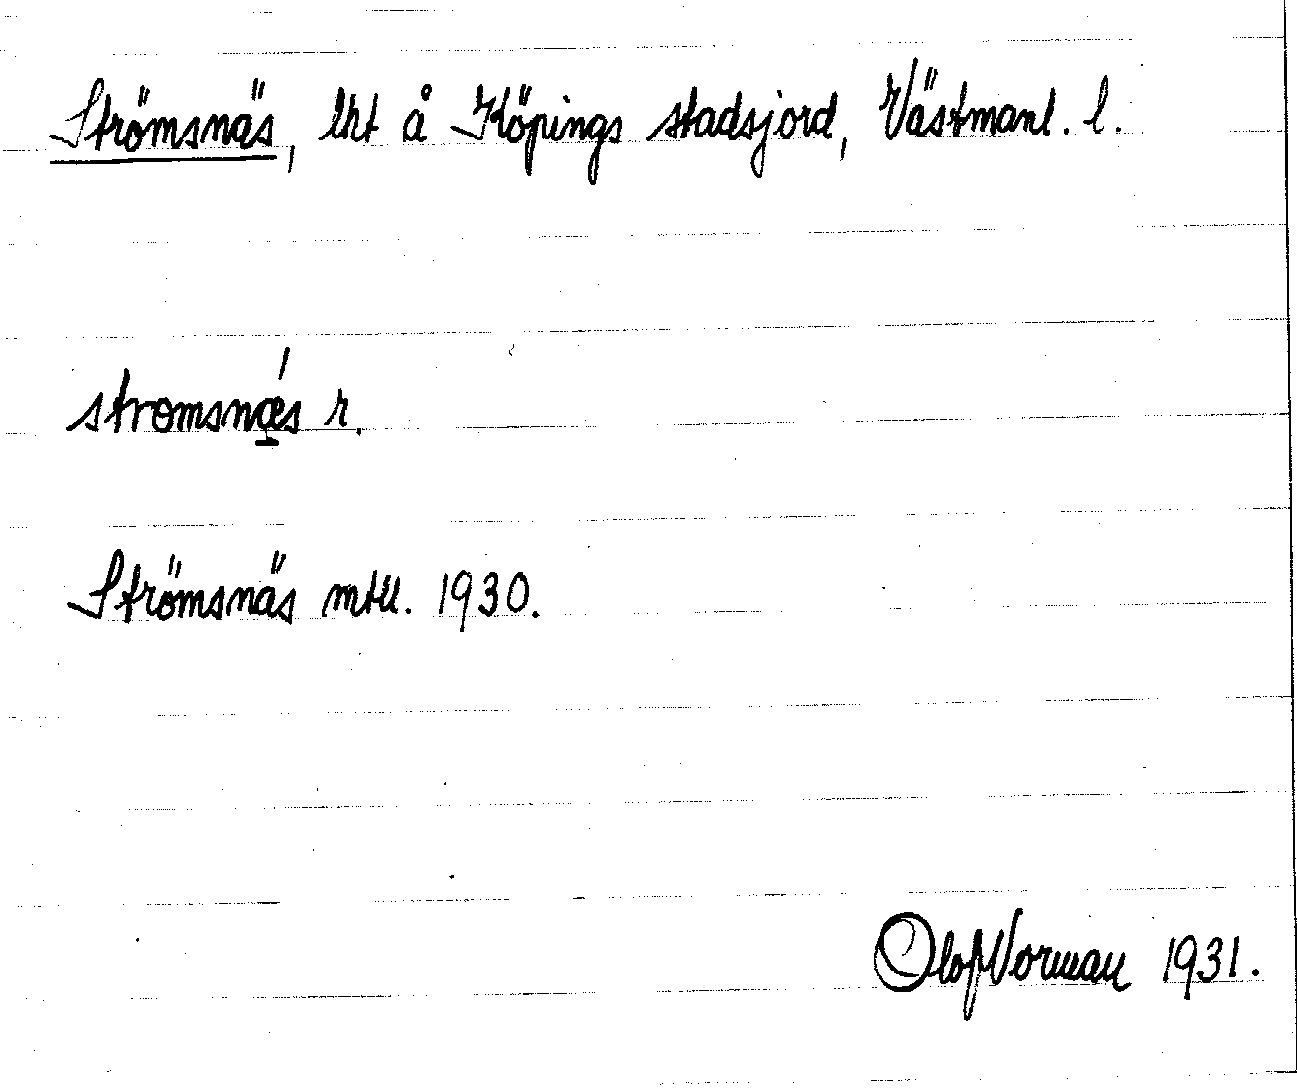 Strömsnäs, lht å Köpings stadsjord, Västmanl. l.
stromsnǽ̱s r.
Strömsnäs mtll. 1930.
Olof Norman 1931.